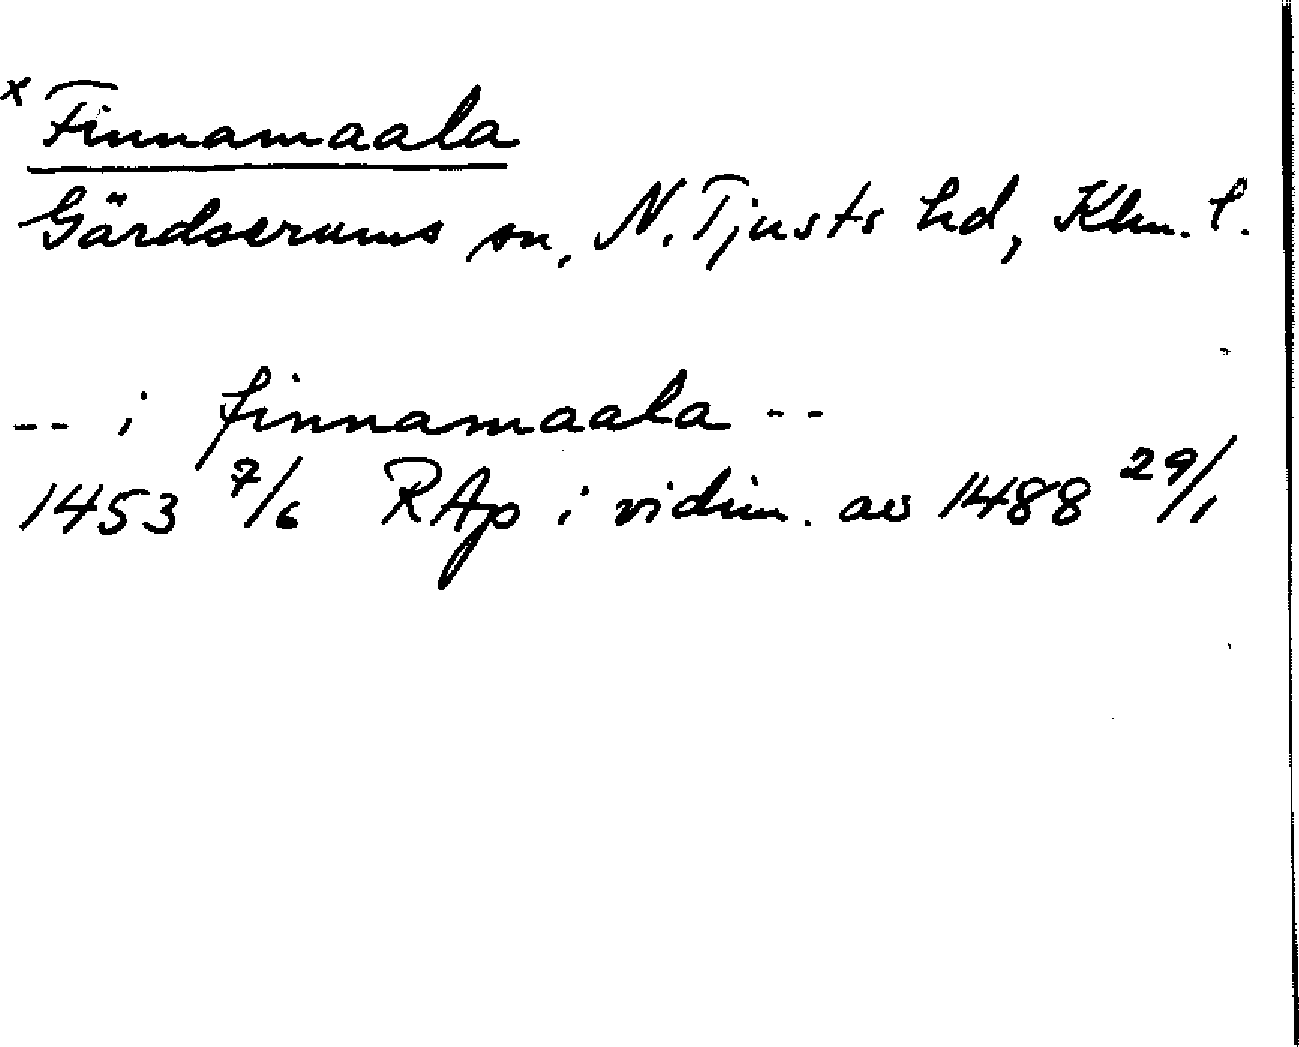 x Finnamaala
Gärdserums sn, N. Tjusts hd, Klm. l.
-- i finnamaala --
1453 7/6 RAp i vidim. av 1488 29/1